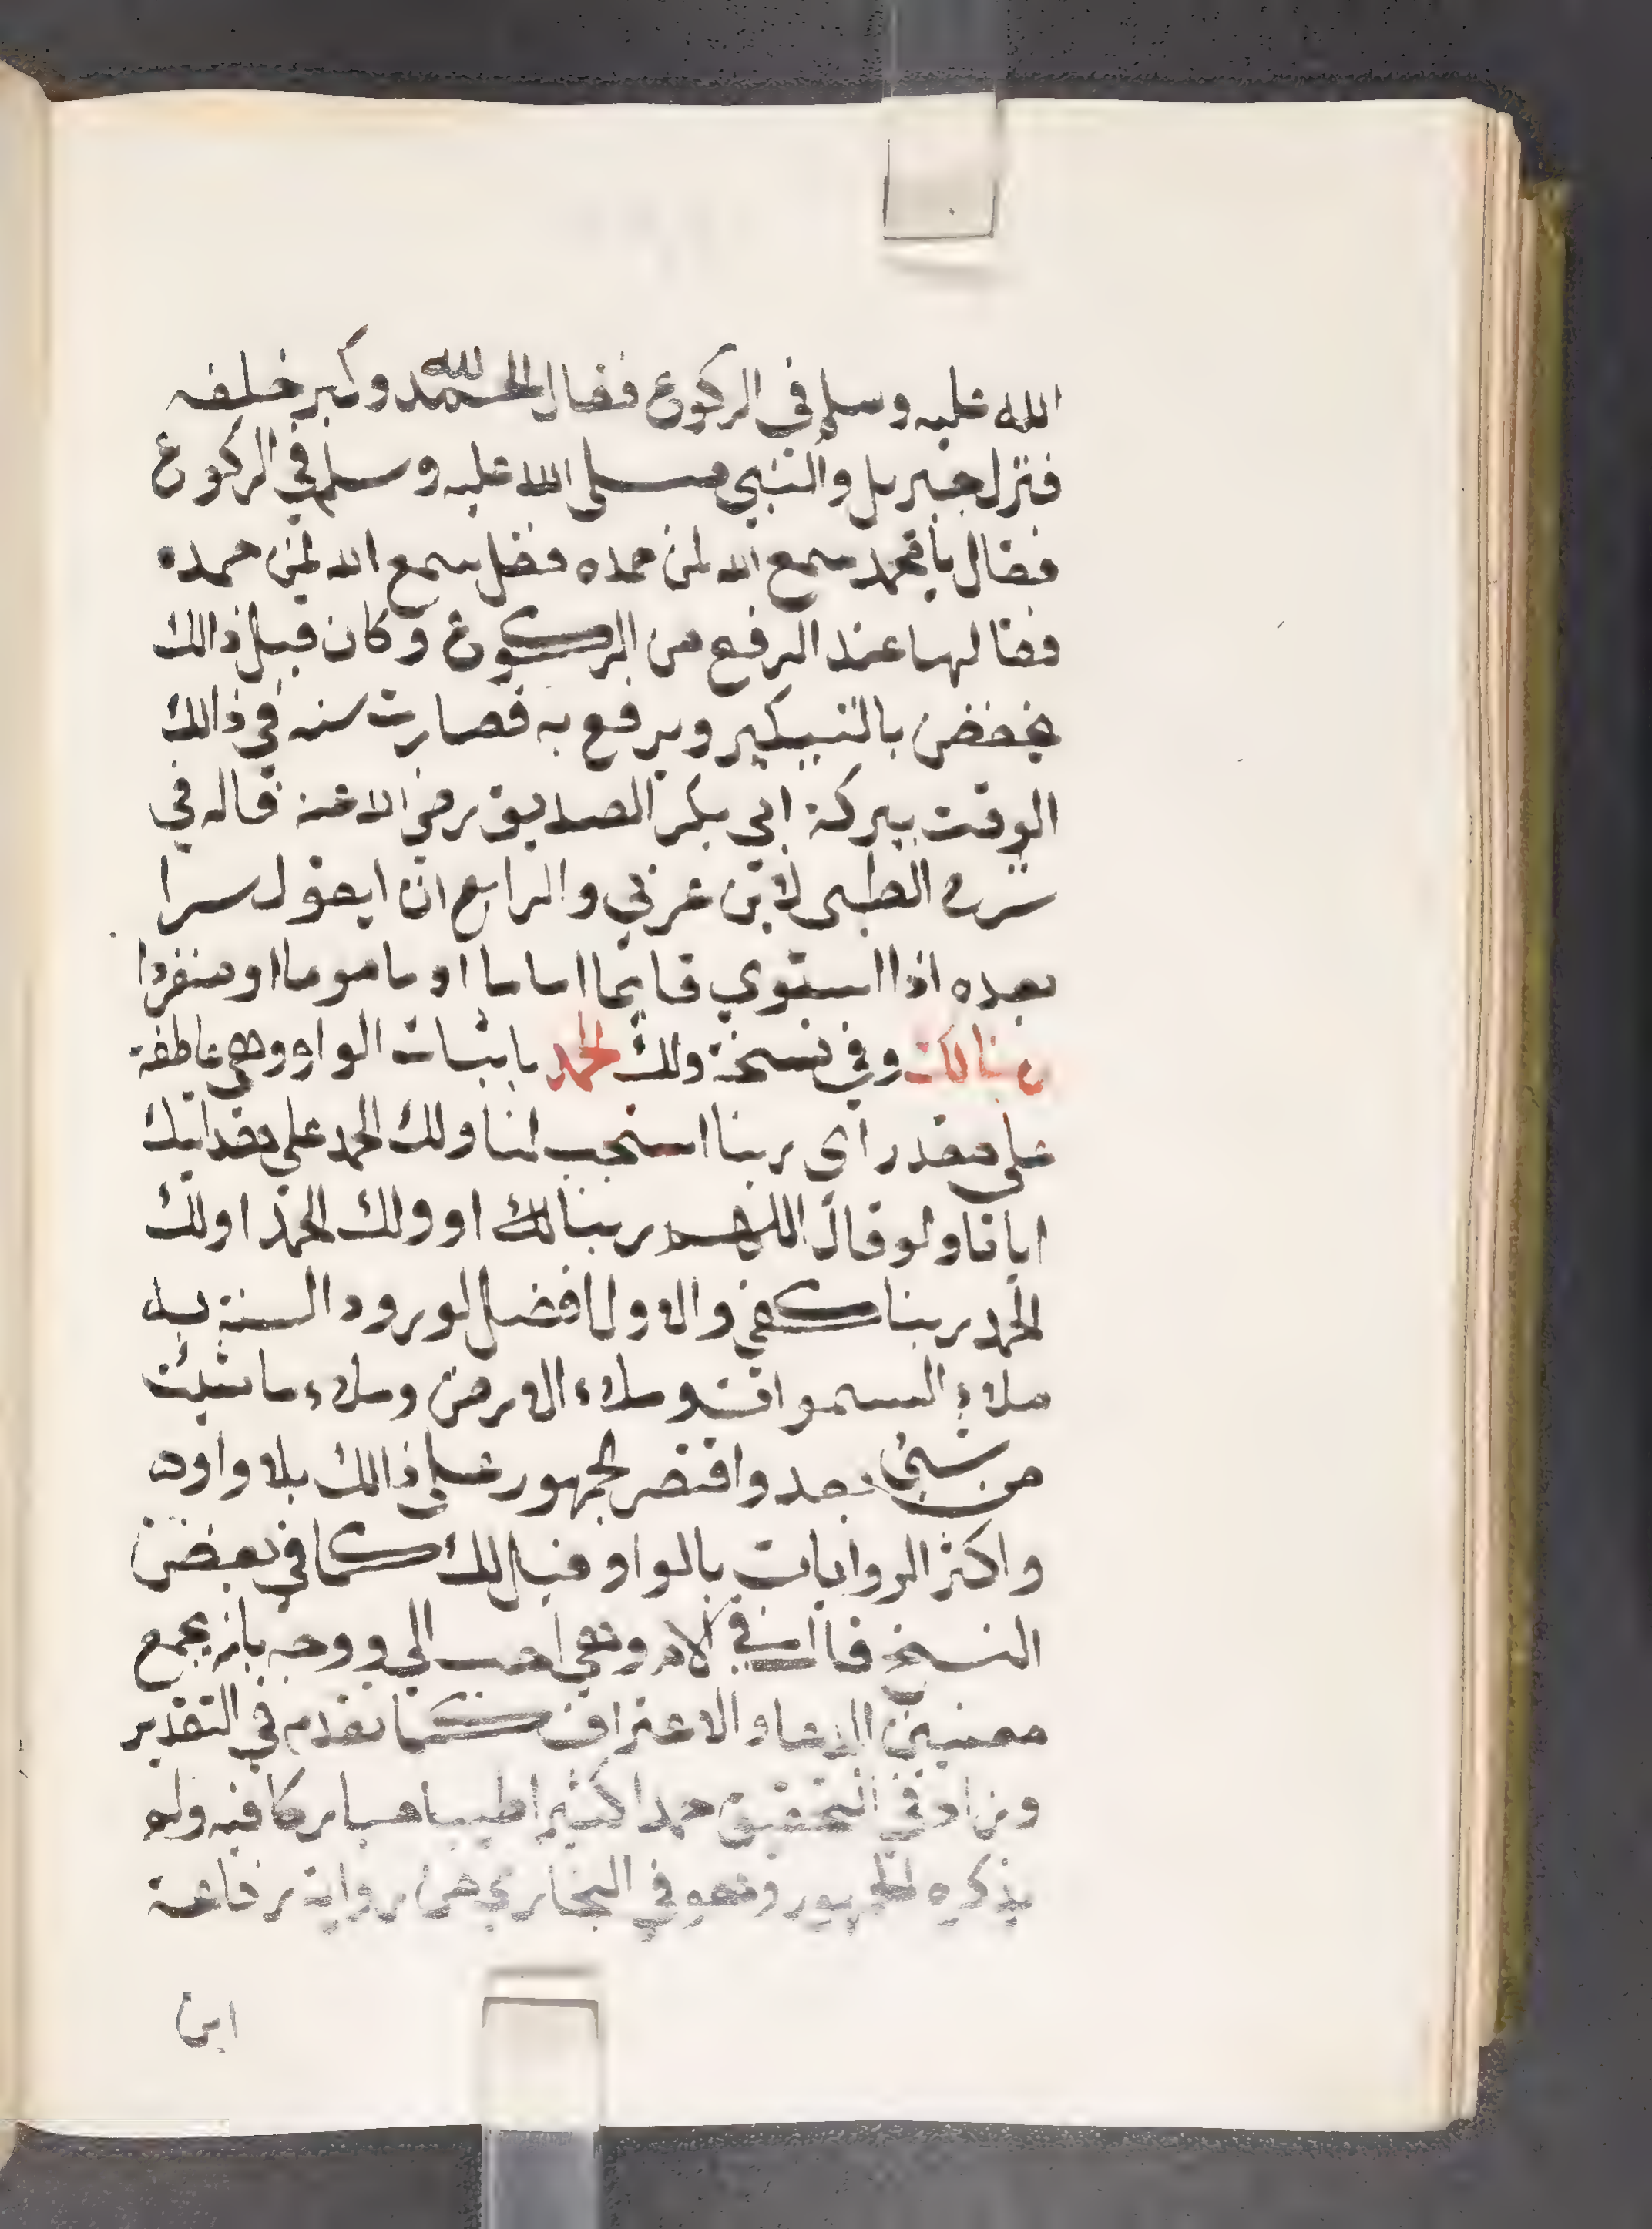 الله عليه وسلم في الركوع فقال الحمد لله وكبر خلفه
فنزل جبريل والنبي صلى الله عليه وسلم في الركوع
فقال يا محمد سمع الله لمن حمده فقل سمع الله لمن حمده
فقالها عند الرفع من الركوع وكان قبل ذالك
يخفض بالتكبير ويرفع به فصارت سنه في ذالك
الوقت ببركة ابي بكر الصديق رضي الله عنه قاله في
شرح الطبى لابن عربي والرابع ان يقول سرا
بعده اذا استوي قايما اماما او ماموما او منفردا
ربنا لك وفي نسخة ولك الحمد باثبات الواو وهي عاطفة
على مقدر اي ربنا استجب لنا ولك الحمد على هدايتك
ايانا ولو قال اللهم ربنا لك او ولك الحمد او لك
الحمد ربنا كفي والاولا افضل لورود السنة به
ملاء السموات وملاء الارض وملاء ما شيت
من شيئ بعد واقتصر الجمهور على ذالك بلا واو
واكثر الروايات بالواو قبل لك كما في بعض
النسخ قال في الام وهي احب الي ووجه بانه يجمع
معنيين الدعا والاعتراف كما تقدم في التقدير
وزاد في التحقيق حمدا كثيرا طيبا مباركا فيه ولم
يذكره الجمهور وهو في البخاري من رواية رفاعة
ابن